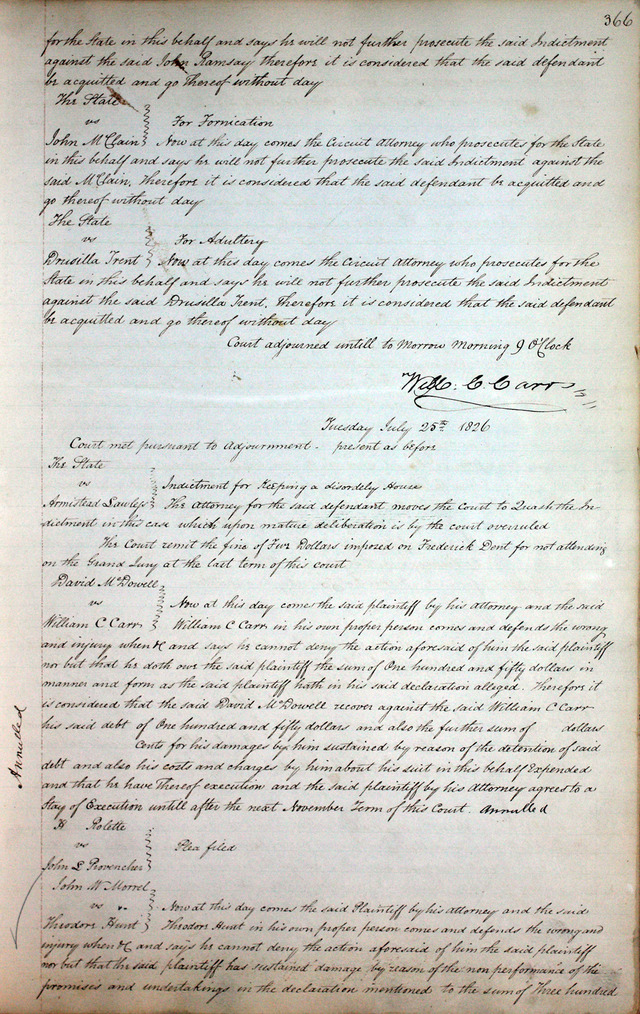 366
for the State in this behalf and says he will not further prosecute the said Indictment
against the said John Ramsay therefore it is considered that the said defendant
be acquitted and go thereof without day
The State
vs For Fornication
John McClain Now at this day comes the Circuit Attorney who prosecutes for the State
in this behalf and says he will not further prosecute the said Indictment against the
said McClain, therefore it is considered that the said defendant be acquitted and
go thereof without day
The State
vs For Adultery
Drusilla Trent Now at this day comes the Circuit Attorney who prosecutes for the
State in this behalf and says he will not further prosecute the said Indictment
against the said Drusilla Trent, therefore it is considered that the said defendant
be acquitted and go thereof without day
Court adjourned untill to Morrow Morning 9 O'Clock
Will. C Carr
Tuesday July 25th 1826
Court met pursuant to Adjournment - present as before
The State
vs Indictment for Keeping a disordely House
Armistead The Attorney for the said defendant moves the Court to Quash the In-
dictment in this case which upon mature deliberation is by the court overruled
The Court remit the fine of Five Dollars imposed on Frederick Dent for not attending
on the Grand Jury at the last term of this court
David McDowell
vs Now at this day comes the said plaintiff by his Attorney and the said
William C Carr William C Carr in his own proper person comes and defends the wrong
and injury when &c and says he cannot deny the action aforesaid of him the said plaintiff
nor but that he doth owe the said plaintiff the sum of One hundred and fifty dollars in
manner and form as the said plaintiff hath in his said declaration alleged. Therefore it
is considered that the said David McDowell recover against the said William C Carr
his said debt of One hundred and fifty dollars and also the further sum of dollars
Cents for his damages by him sustained by reason of the detention of said
debt and also his costs and charges by him about his suit in this behalf Expended
and that he have Thereof execution and the said plaintiff by his Attorney agrees to a
Stay of Execution untill after the next November Term of this Court. Annulled
Annulled
Rolette
vs Plea filed
John L Provencher
John W Morrel
vs Now at this day comes the said Plaintiff by his attorney and the said
Theodore Hunt Theodore Hunt in his own proper person comes and defends the wrong and
injury when &c and says he cannot deny the action aforesaid of him the said plaintiff
nor but that the said plaintiff has sustained damage by reason of the non performance of the
promises and undertakings in the declaration mentioned to the sum of Three hundred